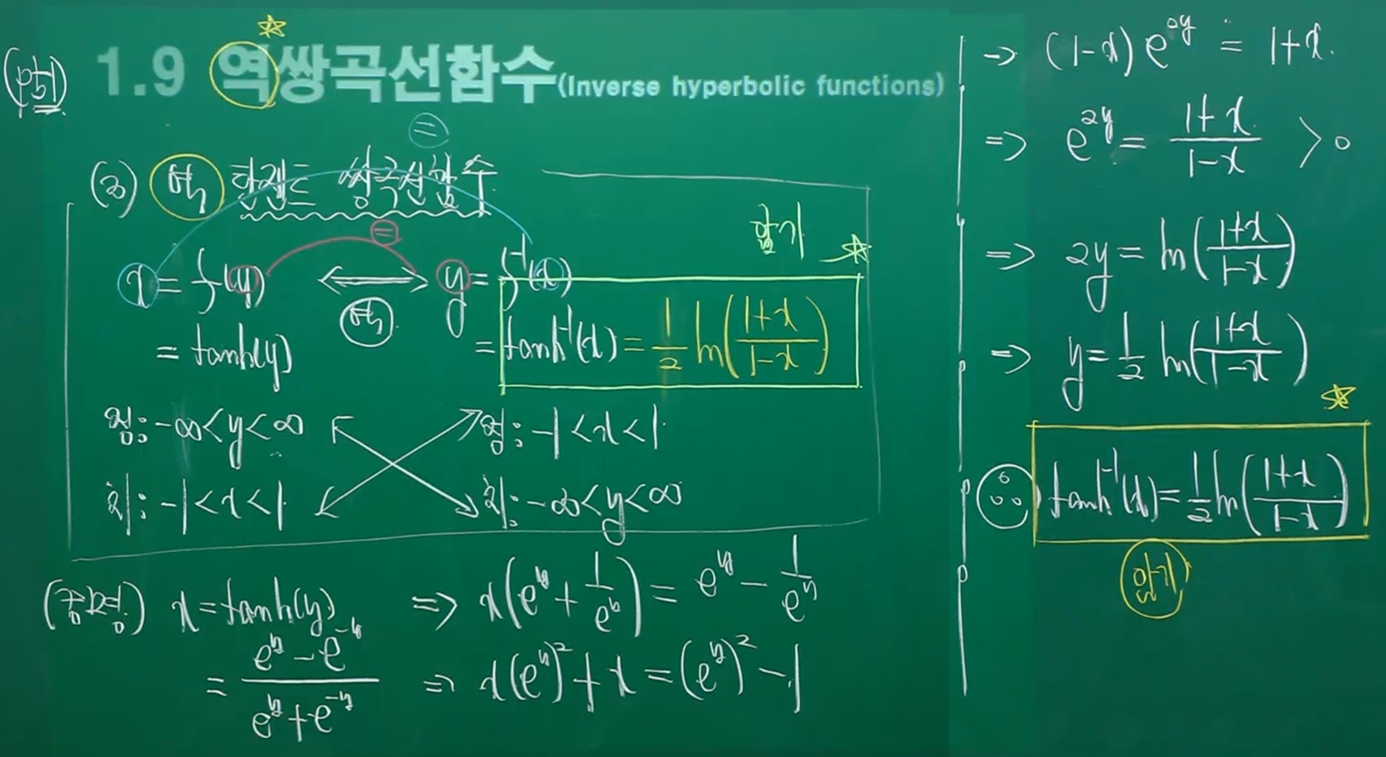 (p51) 1.9 역쌍곡선함수(Inverse hyperbolic functions)
(3) 역 탄젠트 쌍곡선함수
x = f(y) ⟷ y = f⁻¹(x)
역
= tanh(y)
= tanh⁻¹(x) = 1/2 ln((1+x)/(1-x))
암기
정: -∞<y<∞
정: -1<x<1
치: -1<x<1
치: -∞<y<∞
(증명) x = tanh(y) ⇒ x(e^y + 1/e^y) = e^y - 1/e^y
= (e^y - e^-y)/(e^y + e^-y) ⇒ x(e^y)² + x = (e^y)² - 1
⇒ (1-x) e^2y = 1+x.
⇒ e^2y = (1+x)/(1-x) > 0
⇒ 2y = ln((1+x)/(1-x))
⇒ y = 1/2 ln((1+x)/(1-x))
tanh⁻¹(x) = 1/2 ln((1+x)/(1-x))
암기